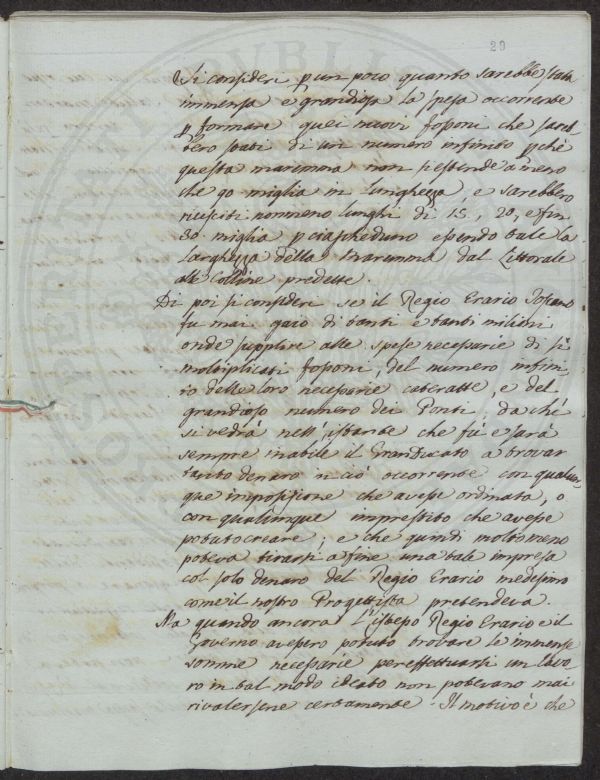 20
Si consideri p un poco quanto sarebbe stata
immensa e grandiosa la spesa occorrente
p formare quei nuovi fossoni che sareb-
bero stati di un numero infinito pchè
questa maremma non si estende a meno
che 90 miglia in lunghezza, e sarebbero
riusciti nommeno lunghi di 15, 20, e fin
30. miglia p ciascheduno essendo tale la
Larghezza della Maremma dal Littorale
alle Colline predette.
Di poi si consideri se il Regio Erario Toscano
fu mai gaio di tanti e tanti milioni
onde supplire alle spese necessarie di sì
moltiplicati fossoni, del numero infini-
to delle loro necessarie cateratte, e del
grandioso numero dei Ponti, da chè
si vedrà nell'istante che fù e sarà
sempre inabile il Granducato a trovar
tanto denaro in ciò occorrente con qualun-
que imposizione che avesse ordinata, o
con qualunque imprestito che avesse
potuto creare; e che quindi molto meno
poteva tirarsi a fine una tale impresa
col solo denaro del Regio Erario medesimo
come il nostro Progettista pretendeva.
Ma quando ancora l'istesso Regio Erario e il
Governo avessero potuto trovare le immense
somme necessarie per effettuarsi un lavo-
ro in tal modo ideato non potevano mai
rivalersene certamente. Il motivo è che